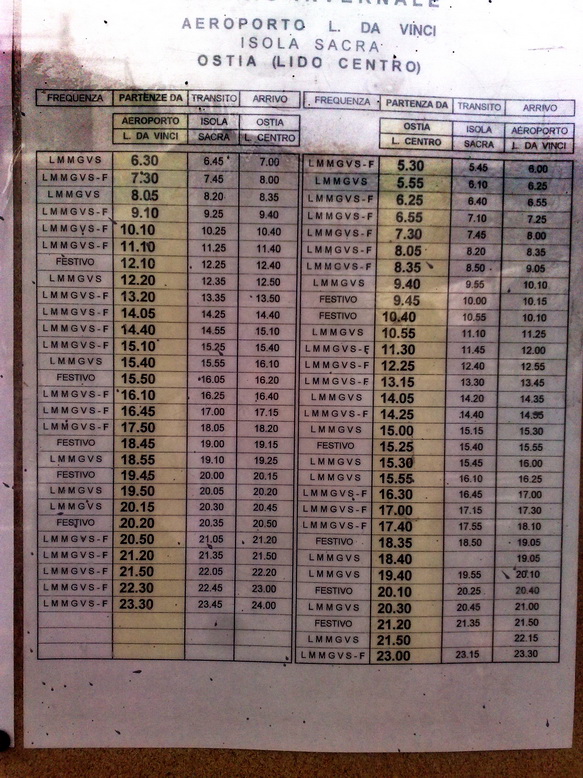 AEROPORTO L. DA VINCI
ISOLA SACRA
OSTIA (LIDO CENTRO)
FREQUENZA PARTENZE DA TRANSITO ARRIVO
AEROPORTO ISOLA OSTIA
L. DA VINCI SACRA L. CENTRO
LMMGVS 6.30 6.45 7.00
LMMGVS-F 7.30 7.45 8.00
LMMGVS 8.05 8.20 8.35
LMMGVS-F 9.10 9.25 9.40
LMMGVS-F 10.10 10.25 10.40
LMMGVS-F 11.10 11.25 11.40
FESTIVO 12.10 12.25 12.40
LMMGVS 12.20 12.35 12.50
LMMGVS-F 13.20 13.35 13.50
LMMGVS-F 14.05 14.25 14.40
LMMGVS-F 14.40 14.55 15.10
LMMGVS-F 15.10 15.25 15.40
LMMGVS 15.40 15.55 16.10
FESTIVO 15.50 16.05 16.20
LMMGVS-F 16.10 16.25 16.40
LMMGVS-F 16.45 17.00 17.15
LMMGVS-F 17.50 18.05 18.20
FESTIVO 18.45 19.00 19.15
LMMGVS 18.55 19.10 19.25
FESTIVO 19.45 20.00 20.15
LMMGVS 19.50 20.05 20.20
LMMGVS 20.15 20.30 20.45
FESTIVO 20.20 20.35 20.50
LMMGVS-F 20.50 21.05 21.20
LMMGVS-F 21.20 21.35 21.50
LMMGVS-F 21.50 22.05 22.20
LMMGVS-F 22.30 22.45 23.00
LMMGVS-F 23.30 23.45 24.00
FREQUENZA PARTENZA DA TRANSITO ARRIVO
OSTIA ISOLA AEROPORTO
L. CENTRO SACRA L. DA VINCI
LMMGVS-F 5.30 5.45 6.00
LMMGVS 5.55 6.10 6.25
LMMGVS-F 6.25 6.40 6.55
LMMGVS-F 6.55 7.10 7.25
LMMGVS-F 7.30 7.45 8.00
LMMGVS-F 8.05 8.20 8.35
LMMGVS-F 8.35 8.50 9.05
LMMGVS 9.40 9.55 10.10
FESTIVO 9.45 10.00 10.15
FESTIVO 10.40 10.55 10.10
LMMGVS 10.55 11.10 11.25
LMMGVS-F 11.30 11.45 12.00
LMMGVS-F 12.25 12.40 12.55
LMMGVS-F 13.15 13.30 13.45
LMMGVS 14.05 14.20 14.35
LMMGVS-F 14.25 14.40 14.55
LMMGVS 15.00 15.15 15.30
FESTIVO 15.25 15.40 15.55
LMMGVS 15.30 15.45 16.00
LMMGVS 15.55 16.10 16.25
LMMGVS-F 16.30 16.45 17.00
LMMGVS-F 17.00 17.15 17.30
LMMGVS-F 17.40 17.55 18.10
FESTIVO 18.35 18.50 19.05
LMMGVS 18.40 19.05
LMMGVS 19.40 19.55 20.10
FESTIVO 20.10 20.25 20.40
LMMGVS 20.30 20.45 21.00
FESTIVO 21.20 21.35 21.50
LMMGVS 21.50 22.15
LMMGVS-F 23.00 23.15 23.30